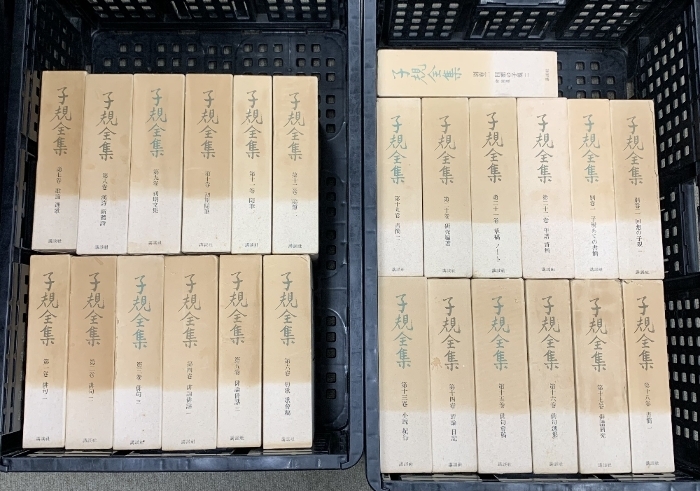 子規全集 第七卷
講談社
子規全集 第八卷 漢詩 新體詩
講談社
子規全集 第九卷 初期文集
講談社
子規全集 第十卷 初期隨筆
講談社
子規全集 第十一卷 隨筆一
講談社
子規全集 第十二卷 隨筆二
講談社
子規全集 第一卷 俳句一
講談社
子規全集 第二卷 俳句二
講談社
子規全集 第三卷 俳句三
講談社
子規全集 第四卷 俳論俳話一
講談社
子規全集 第五卷 俳論俳話二
講談社
子規全集 第六卷 短歌 歌會稿
講談社
子規全集 別卷三 回想の子規二
講談社
子規全集 第十九卷 書簡二
講談社
子規全集 第二十卷 研究編著
講談社
子規全集 第二十一卷 草稿 ノート
講談社
子規全集 第二十二卷 年譜 資料
講談社
子規全集 別卷一 子規あての書簡
講談社
子規全集 別卷二 回想の子規一
講談社
子規全集 第十三卷 小說 紀行
講談社
子規全集 第十四卷 評論 日記
講談社
子規全集 第十五卷 俳句會稿
講談社
子規全集 第十六卷 俳句選集
講談社
子規全集 第十七卷 俳諧研究
講談社
子規全集 第十八卷 書簡一
講談社